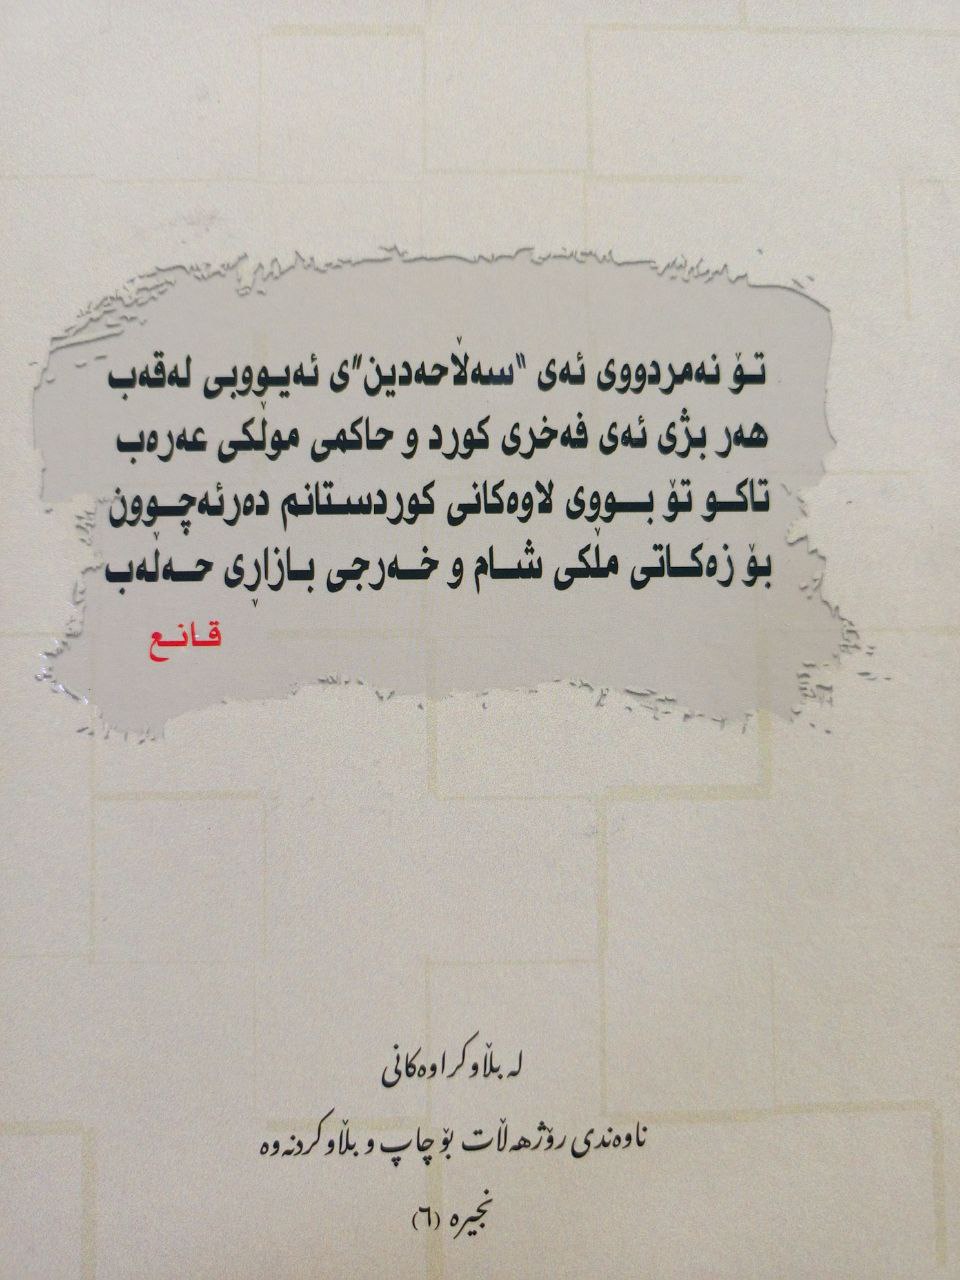 تۆ نەمردووی ئەی "سەڵاحەدین"ی ئەیووبی لەقەب
هەر بژی ئەی فەخری کورد و حاکمی موڵکی عەرەب
تاکو تۆ بووی لاوەکانی کوردستانم دەرئەچوون
بۆ زەکاتی مڵکی شام و خەرجی بازاڕی حەڵەب
قانع
لە بڵاوکراوەکانی
ناوەندی رۆژهەڵات بۆ چاپ و بڵاوکردنەوە
نجیرە (٦)